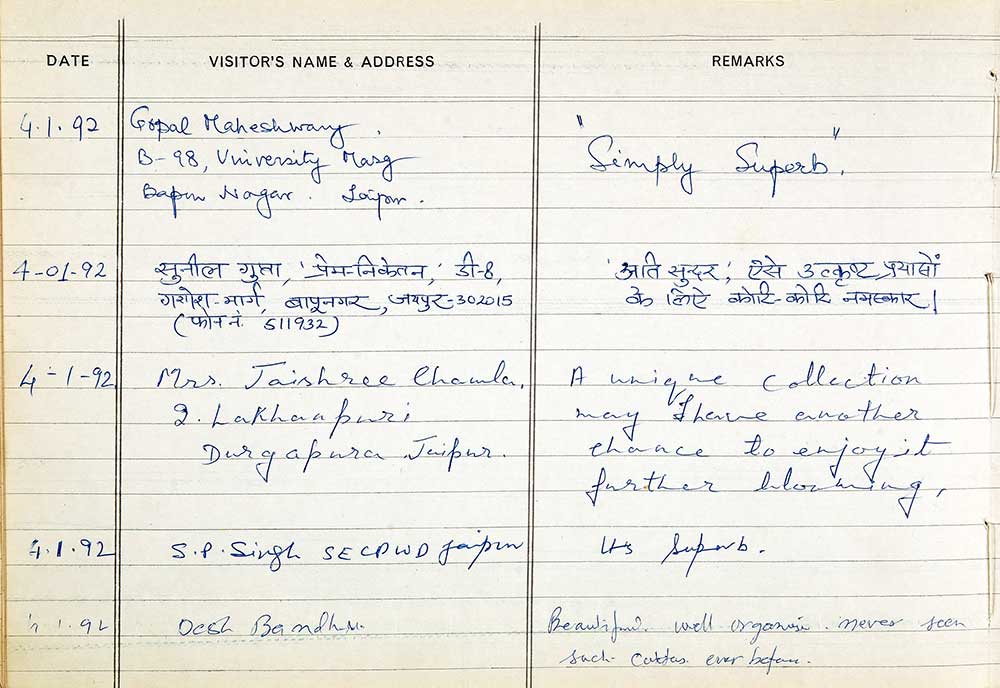 DATE VISITOR'S NAME & ADDRESS REMARKS
4.1.92 Gopal Maheshwary. "Simply Superb".
B-98, University Marg
Bapu Nagar. Jaipur.
4-01-92 सुनील गुप्ता, 'प्रेम-निकेतन,' डी-8, 'अति सुन्दर', ऐसे उत्कृष्ट प्रयासों
गणेश-मार्ग, बापूनगर, जयपुर-302015 के लिऐ कोटि-कोटि नमस्कार।
(फोन नं. 511932)
4-1-92 Mrs. Jaishree Chawla, A unique collection
2. Lakhanpuri may I have another
Durgapura Jaipur. chance to enjoy it
further blooming,
4.1.92 S.P. Singh SE CPWD Jaipur Its Superb.
4.1.92 Desh Bandhu. Beautiful. well organise. never seen
such Caktas ever before.